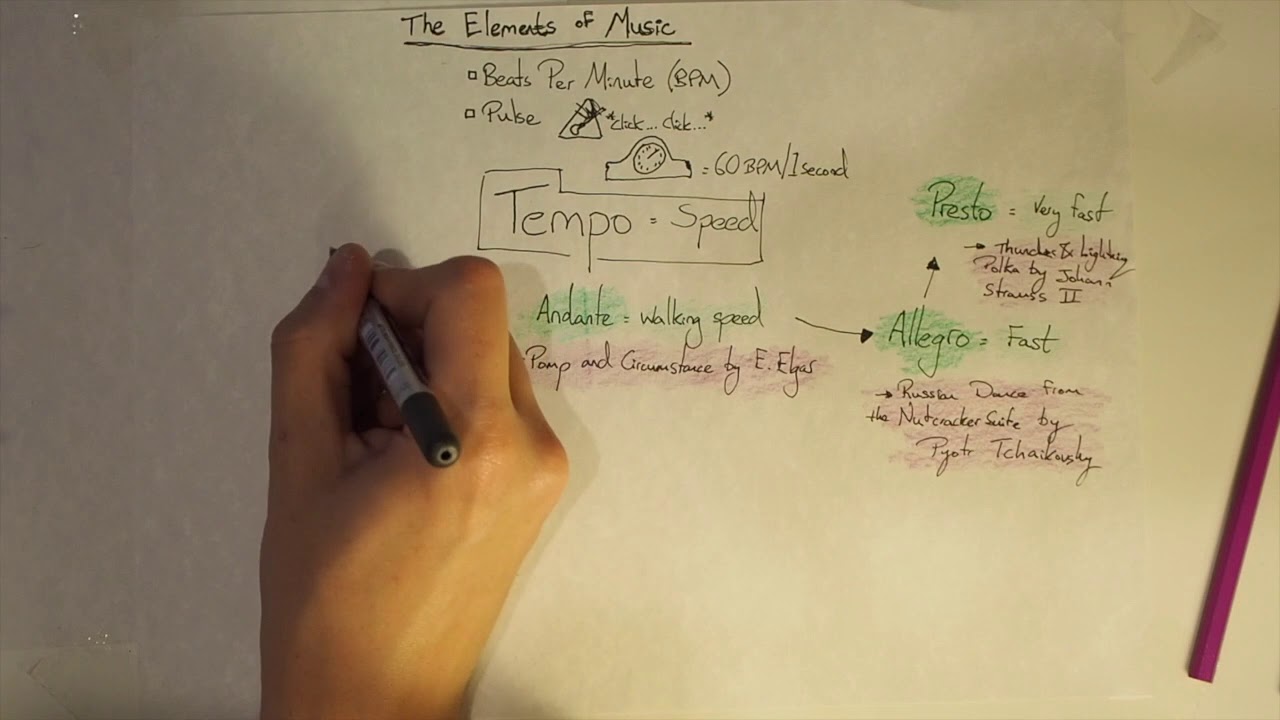 The Elements of Music
Beats Per Minute (BPM)
Pulse *click... click...*
= 60 BPM/1 second
Tempo = Speed
Andante = walking speed
Pomp and Circumstance by E. Elgar
Allegro = Fast
→ Russian Dance from
the Nutcracker Suite by
Pyotr Tchaikovsky
Presto = Very fast
→ Thunder & Lightning
Polka by Johann
Strauss II